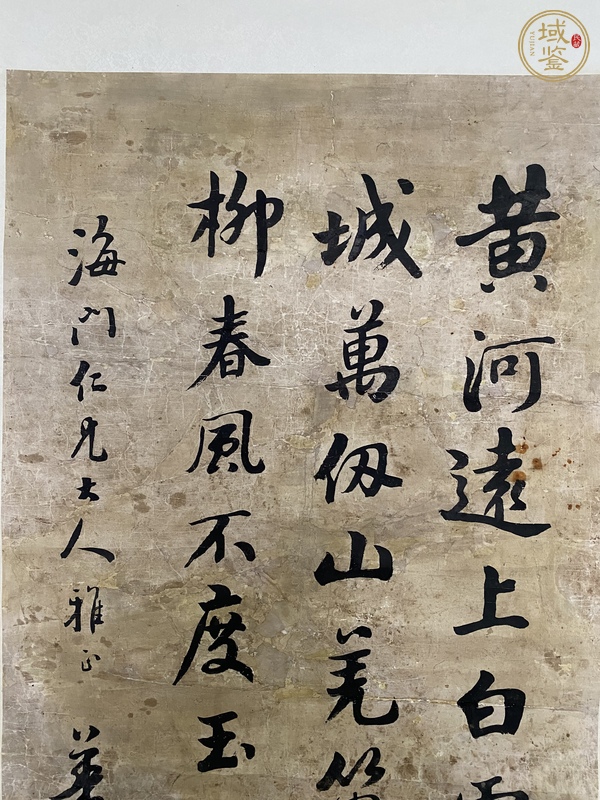 黄河遠上白
城萬仞山羌
柳春風不度玉
海門仁兄大人雅正
域鉴
YUJIAN